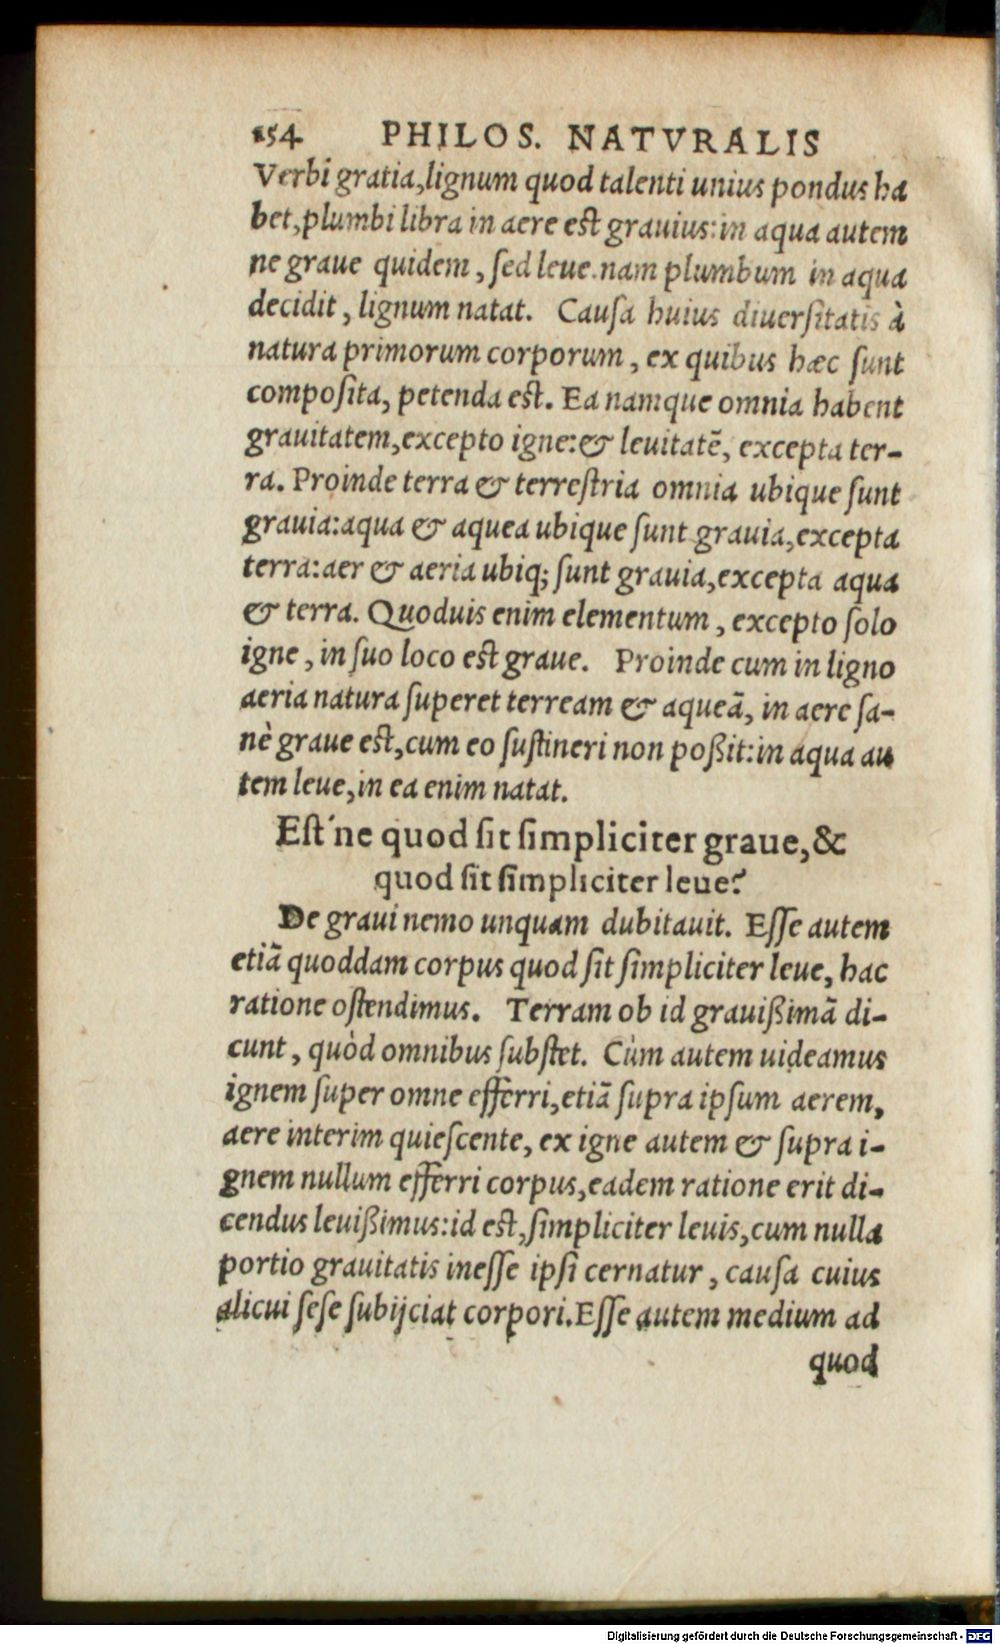 154 PHILOS. NATVRALIS
Verbi gratia, lignum quod talenti unius pondus ha
bet, plumbi libra in aere est grauius: in aqua autem
ne graue quidem, ſed leue. nam plumbum in aqua
decidit, lignum natat. Cauſa huius diuerſitatis à
natura primorum corporum, ex quibus hæc ſunt
compoſita, petenda est. Ea namque omnia habent
grauitatem, excepto igne: & leuitatē, excepta ter-
ra. Proinde terra & terreſtria omnia ubique ſunt
grauia: aqua & aquea ubique ſunt grauia, excepta
terra: aer & aeria ubiq; ſunt grauia, excepta aqua
& terra. Quoduis enim elementum, excepto ſolo
igne, in ſuo loco est graue. Proinde cum in ligno
aeria natura ſuperet terream & aqueā, in aere ſa-
nè graue est, cum eo ſuſtineri non poßit: in aqua au
tem leue, in ea enim natat.
Eſt'ne quod ſit ſimpliciter graue, &
quod ſit ſimpliciter leue?
De graui nemo unquam dubitauit. Eſſe autem
etiā quoddam corpus quod ſit ſimpliciter leue, hac
ratione oſtendimus. Terram ob id grauißimā di-
cunt, quòd omnibus ſubſtet. Cùm autem uideamus
ignem ſuper omne efferri, etiā ſupra ipſum aerem,
aere interim quieſcente, ex igne autem & ſupra i-
gnem nullum efferri corpus, eadem ratione erit di-
cendus leuißimus: id est, ſimpliciter leuis, cum nulla
portio grauitatis ineſſe ipſi cernatur, cauſa cuius
alicui ſeſe ſubijciat corpori. Eſſe autem medium ad
quod
Digitalisierung gefördert durch die Deutsche Forschungsgemeinschaft - DFG